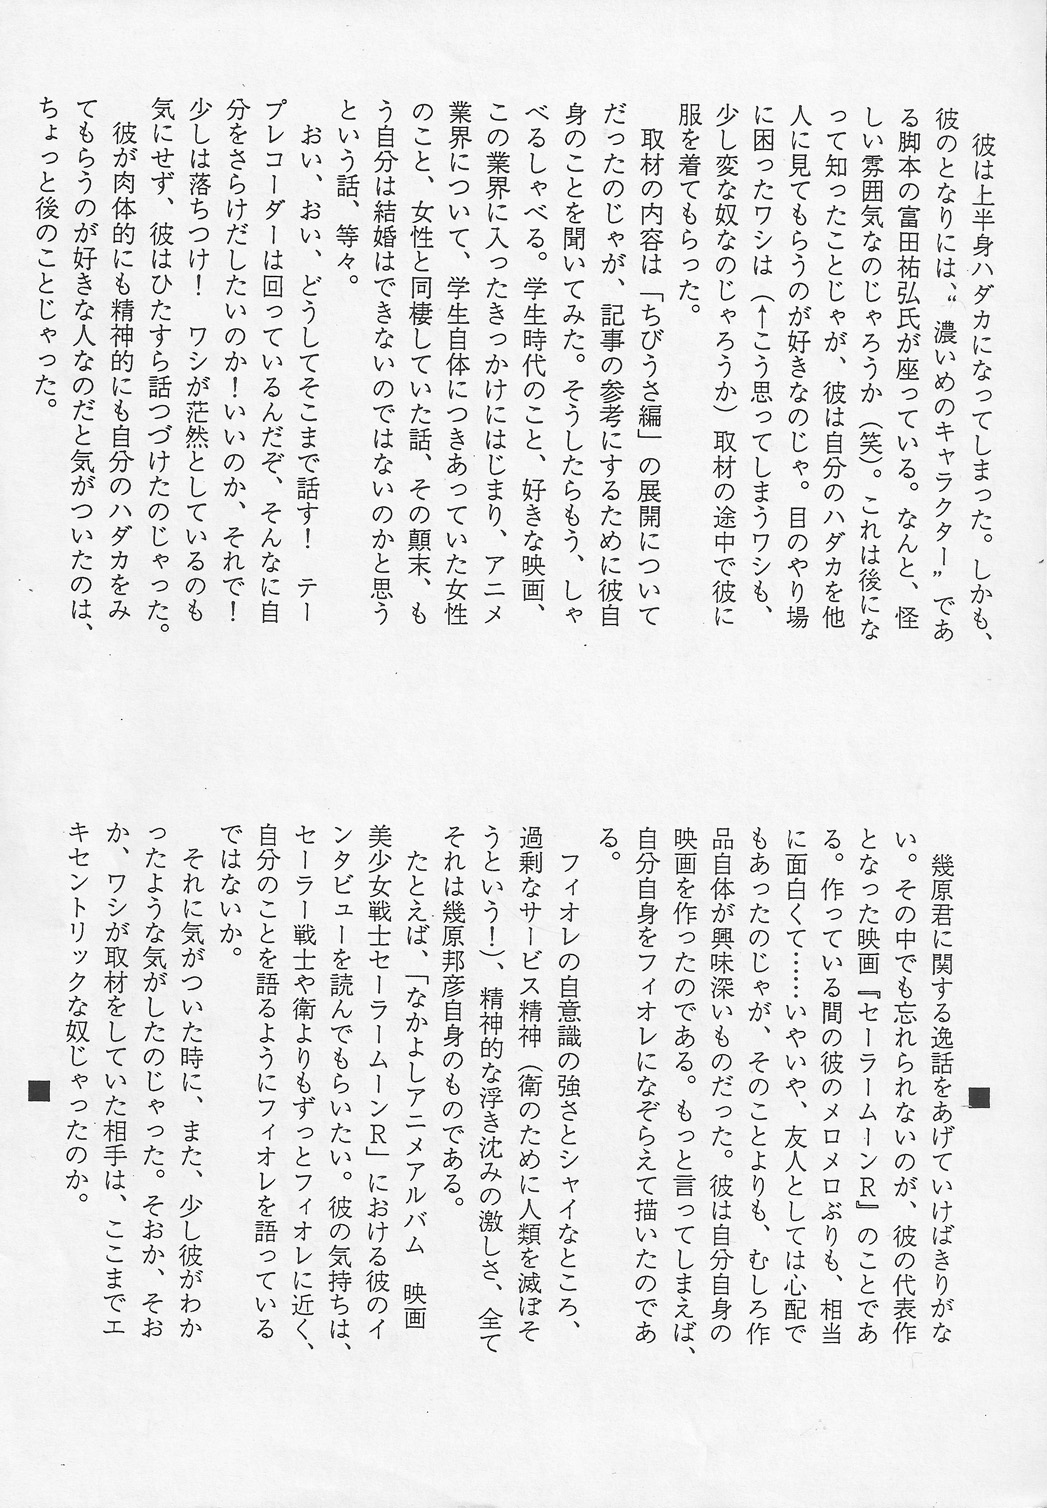 彼は上半身ハダカになってしまった。しかも、
彼のとなりには、“濃いめのキャラクター”であ
る脚本の富田祐弘氏が座っている。なんと、怪
しい雰囲気なのじゃろうか（笑）。これは後にな
って知ったことじゃが、彼は自分のハダカを他
人に見てもらうのが好きなのじゃ。目のやり場
に困ったワシは（←こう思ってしまうワシも、
少し変な奴なのじゃろうか）取材の途中で彼に
服を着てもらった。
取材の内容は「ちびうさ編」の展開について
だったのじゃが、記事の参考にするために彼自
身のことを聞いてみた。そうしたらもう、しゃ
べるしゃべる。学生時代のこと、好きな映画、
この業界に入ったきっかけにはじまり、アニメ
業界について、学生自体につきあっていた女性
のこと、女性と同棲していた話、その顛末、も
う自分は結婚はできないのではないのかと思う
という話、等々。
おい、おい、どうしてそこまで話す！　テー
プレコーダーは回っているんだぞ、そんなに自
分をさらけだしたいのか！いいのか、それで！
少しは落ちつけ！　ワシが茫然としているのも
気にせず、彼はひたすら話つづけたのじゃった。
彼が肉体的にも精神的にも自分のハダカをみ
てもらうのが好きな人なのだと気がついたのは、
ちょっと後のことじゃった。
■
幾原君に関する逸話をあげていけばきりがな
い。その中でも忘れられないのが、彼の代表作
となった映画『セーラームーンＲ』のことであ
る。作っている間の彼のメロメロぶりも、相当
に面白くて……いやいや、友人としては心配で
もあったのじゃが、そのことよりも、むしろ作
品自体が興味深いものだった。彼は自分自身の
映画を作ったのである。もっと言ってしまえば、
自分自身をフィオレになぞらえて描いたのであ
る。
フィオレの自意識の強さとシャイなところ、
過剰なサービス精神（衛のために人類を滅ぼそ
うという！）、精神的な浮き沈みの激しさ、全て
それは幾原邦彦自身のものである。
たとえば、「なかよしアニメアルバム　映画
美少女戦士セーラームーンＲ」における彼のイ
ンタビューを読んでもらいたい。彼の気持ちは、
セーラー戦士や衛よりもずっとフィオレに近く、
自分のことを語るようにフィオレを語っている
ではないか。
それに気がついた時に、また、少し彼がわか
ったような気がしたのじゃった。そおか、そお
か、ワシが取材をしていた相手は、ここまでエ
キセントリックな奴じゃったのか。
■